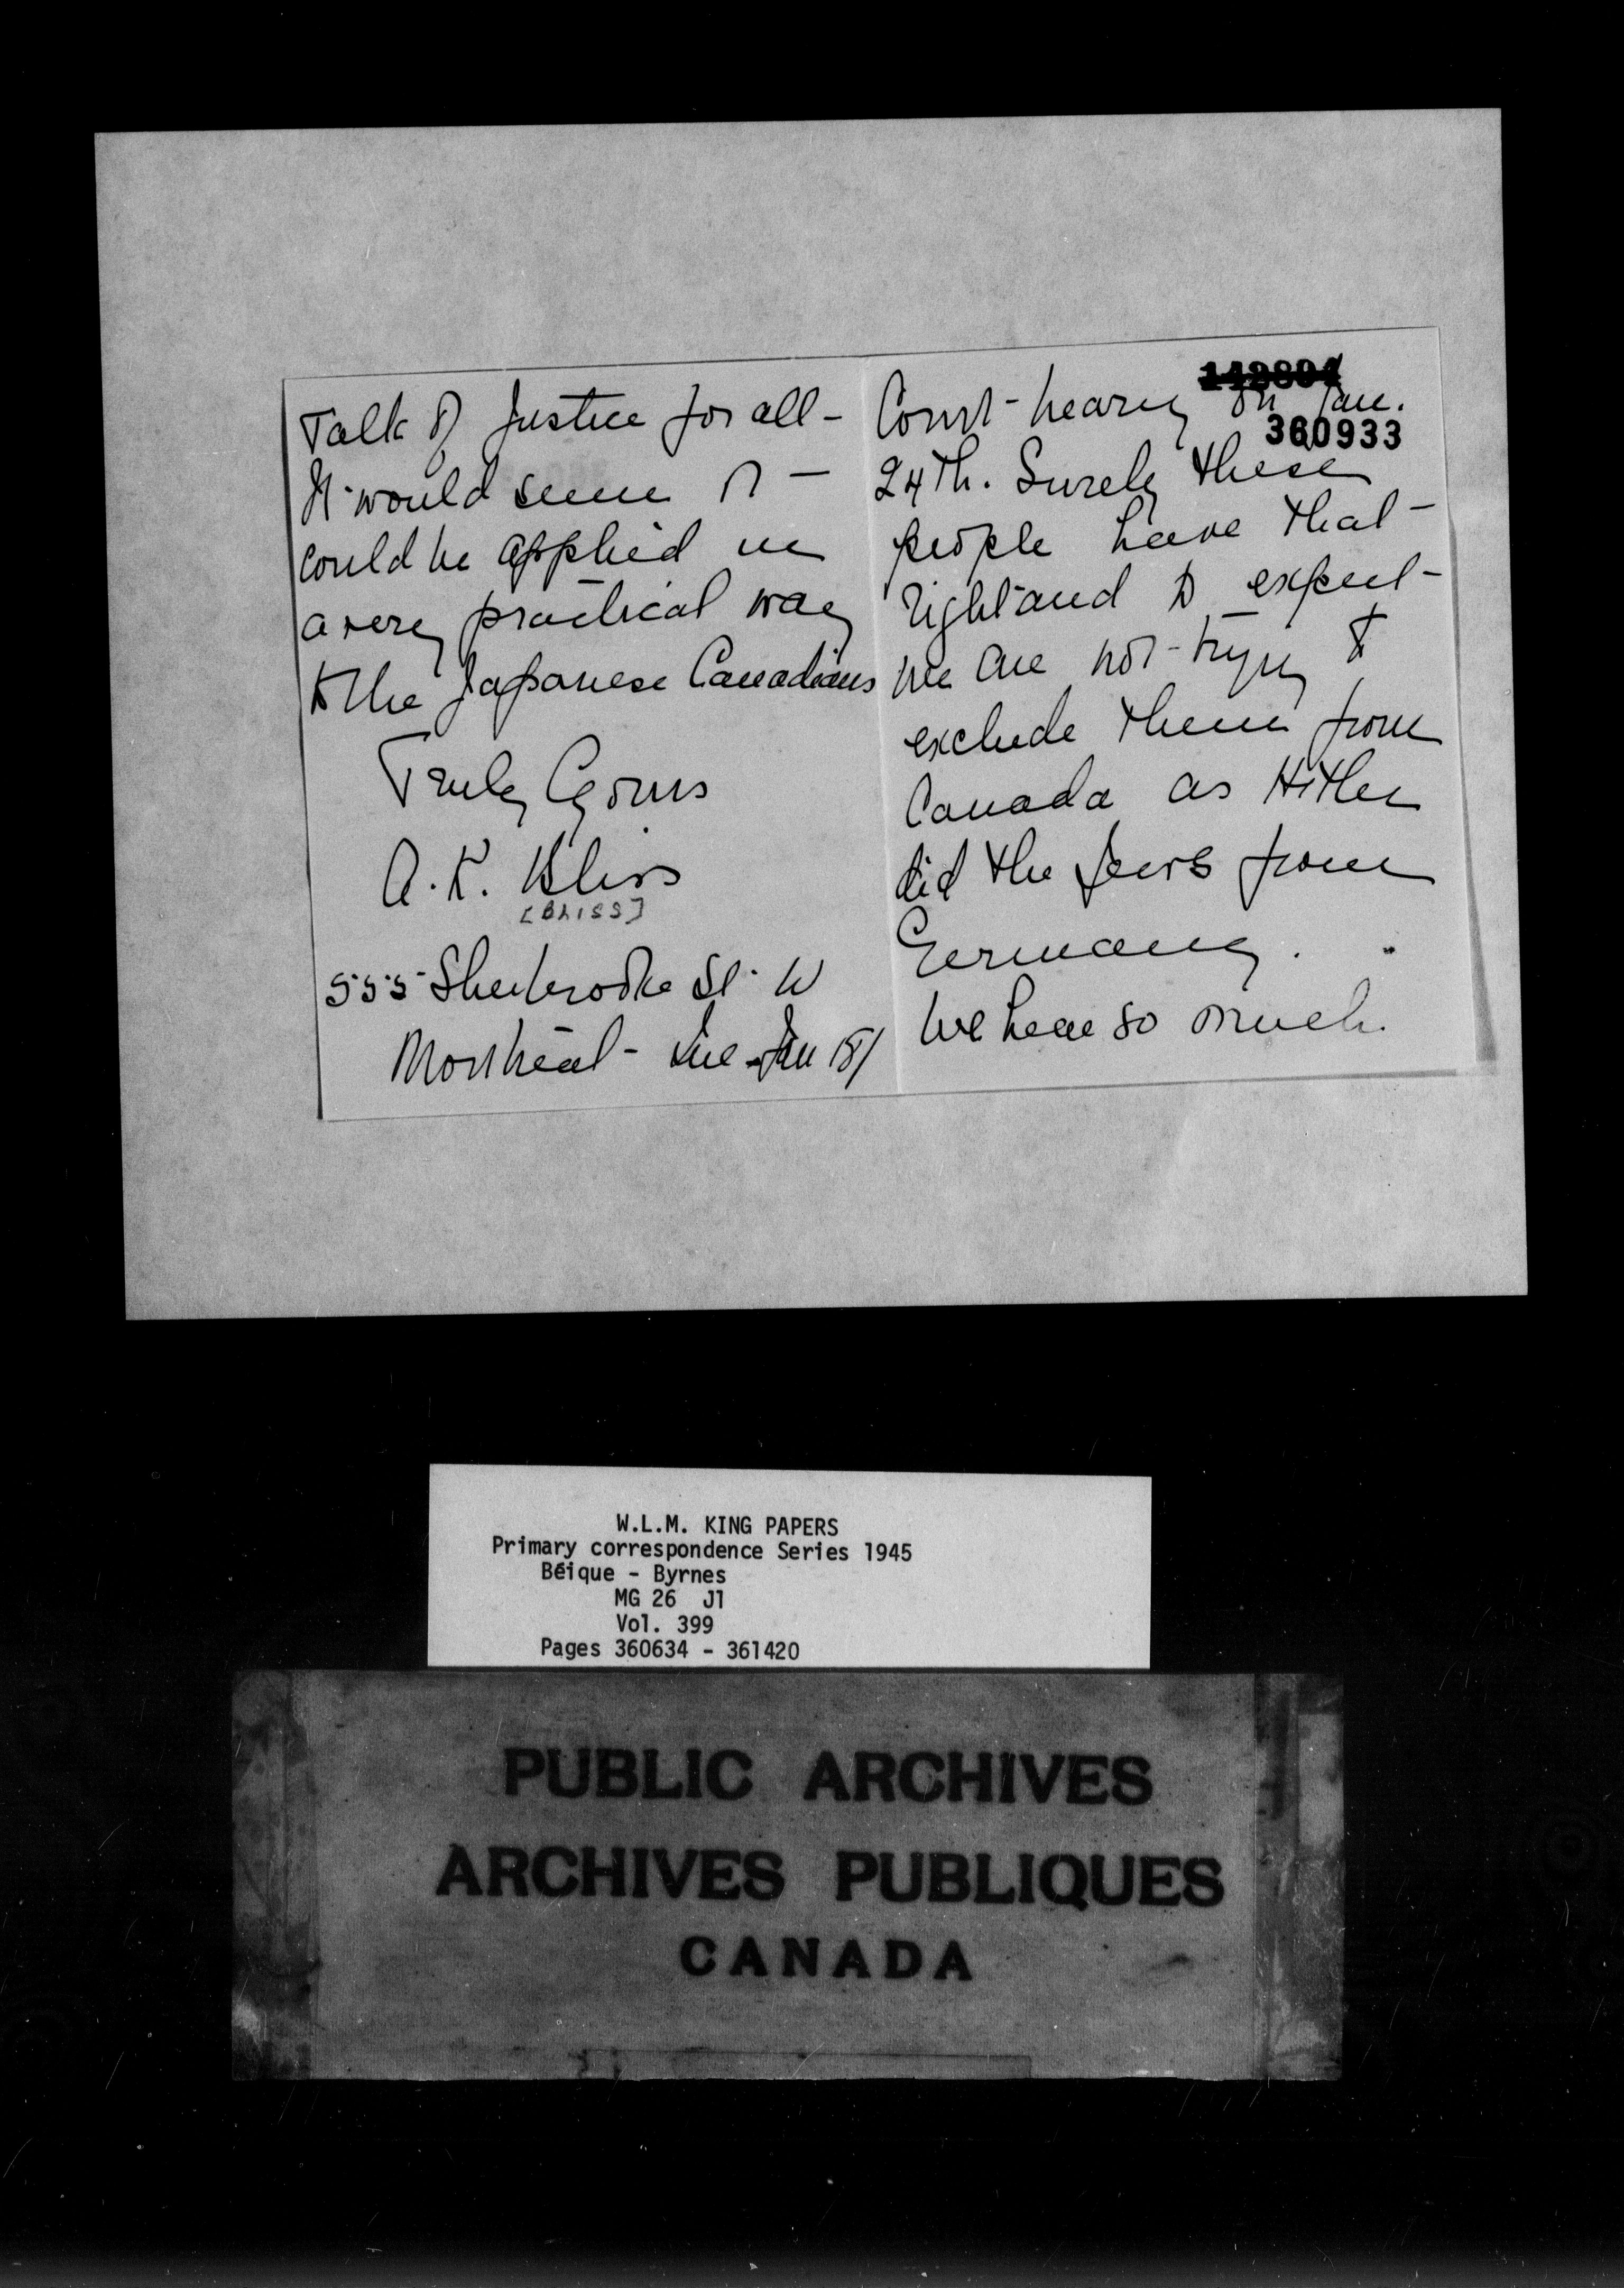 142894
360933
Talk of Justice for all -
It would seem it -
could be applied in
a very practical way
to the Japanese Canadians
Truly Yours
A. K. Bliss
[BLISS]
555 Sherbrooke St. W
Montreal -
Court - hearing on Jan.
24th. Surely these
people have that -
right and to expect -
we are not - trying to
exclude them from
Canada as Hitler
did the Jews from
Germany.
We hear so much.
W.L.M. KING PAPERS
Primary correspondence Series 1945
Béique - Byrnes
MG 26 J1
Vol. 399
Pages 360634 - 361420
PUBLIC ARCHIVES
ARCHIVES PUBLIQUES
CANADA